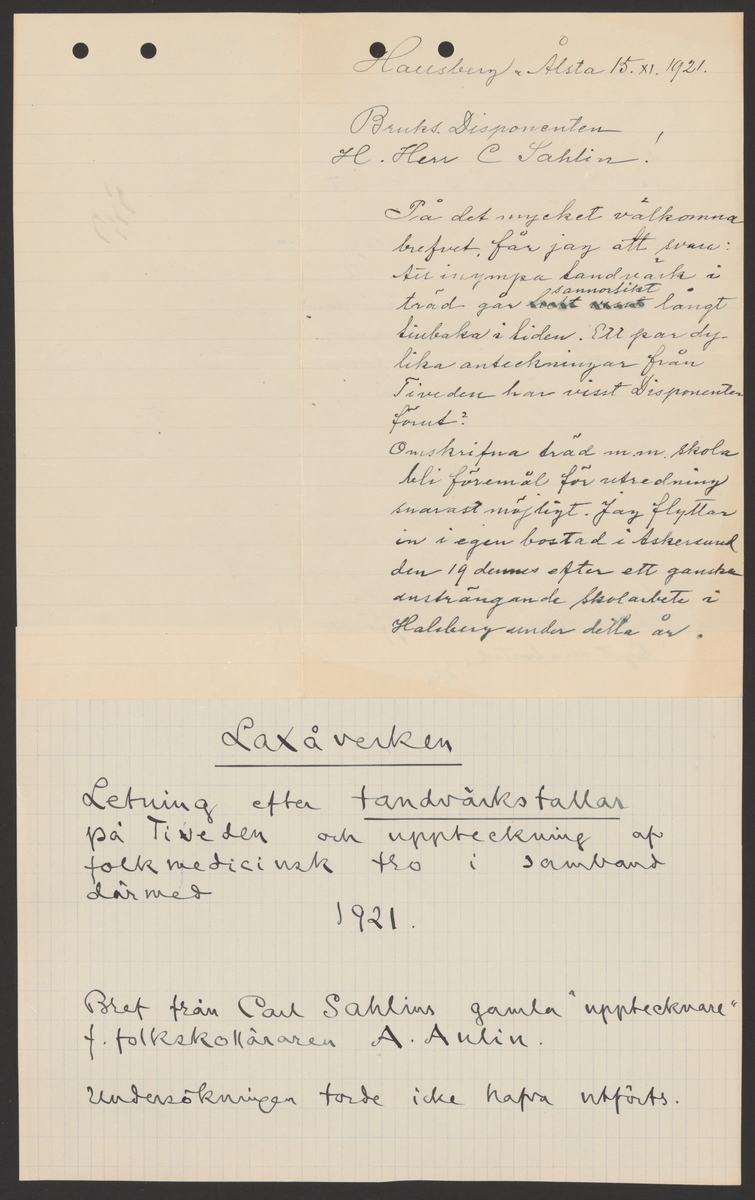 Hallsberg, Ålsta 15. XI. 1921.
Bruks. Disponenten
H. Herr C Sahlin!
På det mycket välkomna
brefvet, får jag att svara:
Att inympa tandvärk i
träd går sannorlikt långt
tiubaka i tiden. Ett par dy-
lika anteckningar från
Tiveden har visst Disponenten
förut?
Omskrifna träd m.m. skola
bli föremål för utredning
snarast möjligt. Jag flyttar
in i egen bostad i Askersund
den 19 dennes efter ett ganska
ansträngande skolarbete i
Halsberg under detta år.
Laxåverken
Letning efter tandvärkstallar
på Tiveden och uppteckning af
folkmedicinsk tro i samband
därmed
1921.
Bref från Carl Sahlins gamla "upptecknare"
f. folkskolläraren A. Aulin.
Undersökningen torde icke hafva utförts.